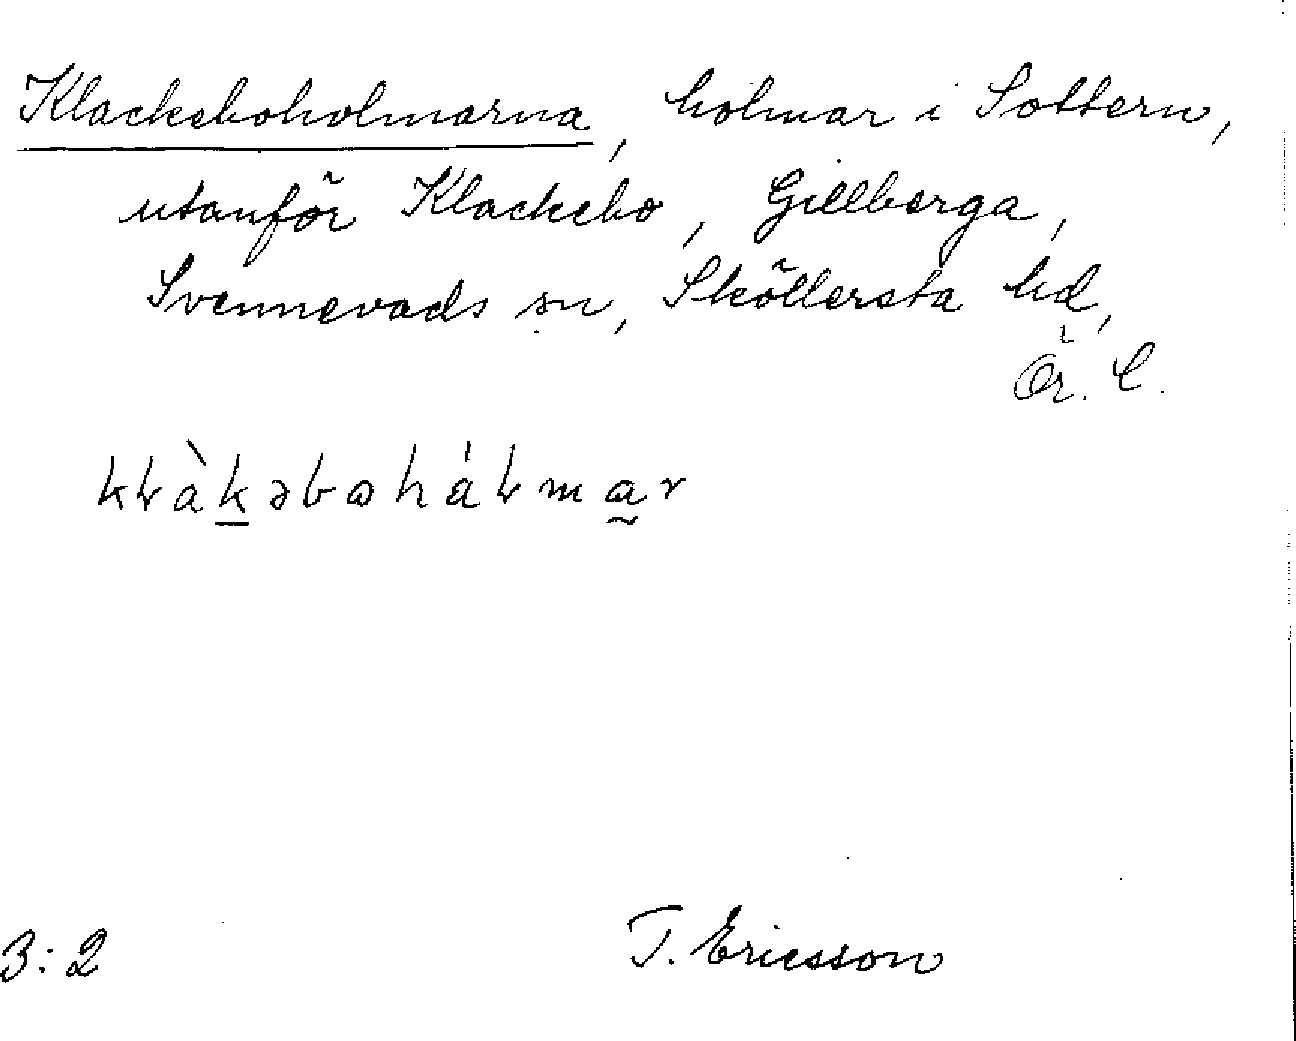 Klackeboholmarna, holmar i Sottern,
utanför Klackebo, Gillberga,
Svennevads sn, Sköllersta hd,
Ör. l.
3:2
T. Ericsson